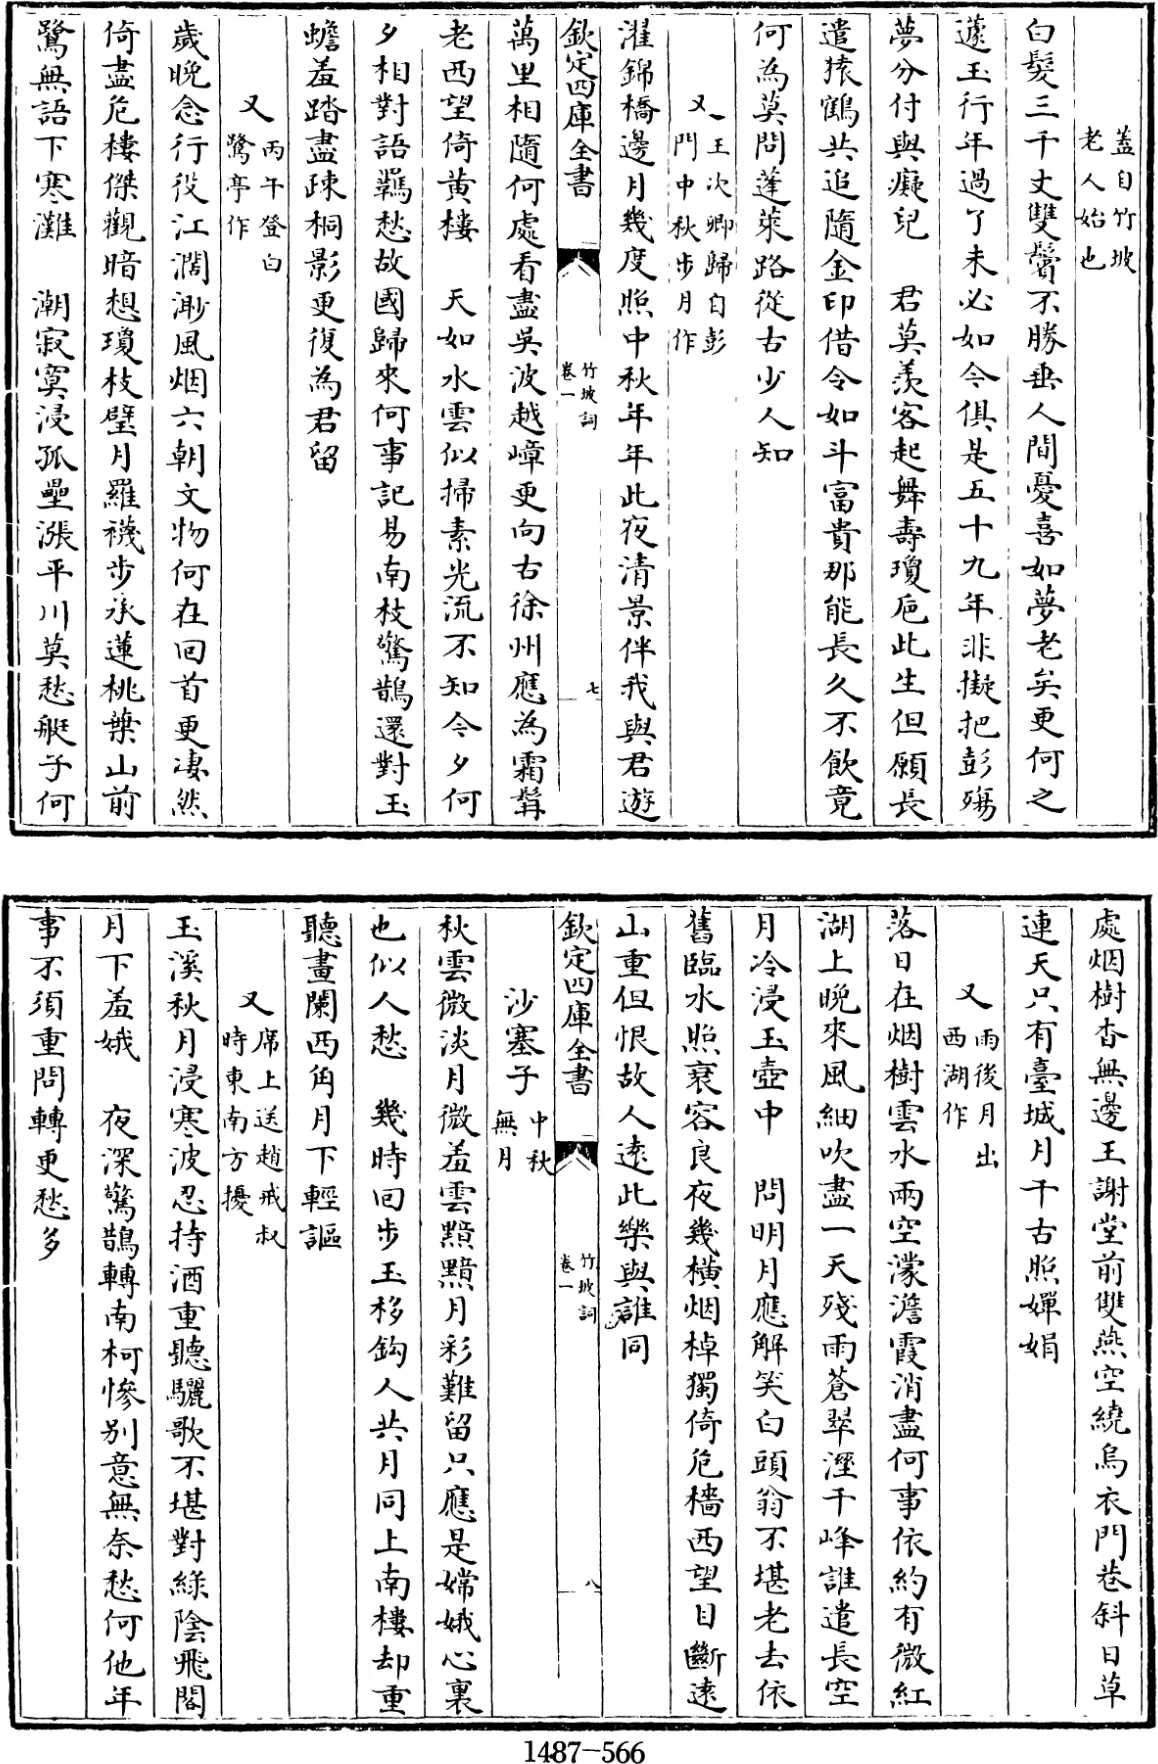 蓋自竹坡
老人始也
白髮三千丈雙鬢不勝垂人間憂喜如夢老矣更何之
蘧玉行年過了未必如今俱是五十九年非擬把彭殤
夢分付與癡兒　君莫羨客起舞壽瓊巵此生但願長
遣猿鶴共追隨金印借令如斗富貴那能長久不飲竟
何為莫問蓬萊路從古少人知
又一王次卿歸自彭
門中秋步月作
濯錦橋邊月幾度照中秋年年此夜清景伴我與君遊
欽定四庫全書
竹坡詞
卷一
七
萬里相隨何處看盡吳波越嶂更向古徐州應為霜髯
老西望倚黃樓　天如水雲似掃素光流不知今夕何
夕相對語羈愁故國歸來何事記易南枝驚鵲還對玉
蟾羞踏盡踈桐影更復為君留
又丙午登白
鷺亭作
歲晚念行役江濶渺風烟六朝文物何在回首更凄然
倚盡危樓傑觀暗想瓊枝璧月羅襪步承蓮桃葉山前
鷺無語下寒灘　潮寂寞浸孤壘漲平川莫愁艇子何
處烟樹杳無邊王謝堂前雙燕空繞烏衣門巷斜日草
連天只有臺城月千古照嬋娟
又雨後月出
西湖作
落日在烟樹雲水兩空濛澹霞消盡何事依約有微紅
湖上晚來風細吹盡一天殘雨蒼翠溼千峰誰遣長空
月冷浸玉壺中　問明月應解笑白頭翁不堪老去依
舊臨水照衰容良夜幾橫烟棹獨倚危檣西望目斷遠
山重但恨故人遠此樂與誰同
欽定四庫全書
竹坡詞
卷一
八
沙塞子中秋
無月
秋雲微淡月微羞雲黯黯月彩難留只應是嫦娥心裏
也似人愁　幾時回步玉移鈎人共月同上南樓却重
聽畫闌西角月下輕謳
又席上送趙戒叔
時東南方擾
玉溪秋月浸寒波忍持酒重聽驪歌不堪對綠陰飛閣
月下羞娥　夜深驚鵲轉南柯慘别意無奈愁何他年
事不須重問轉更愁多
1487—566